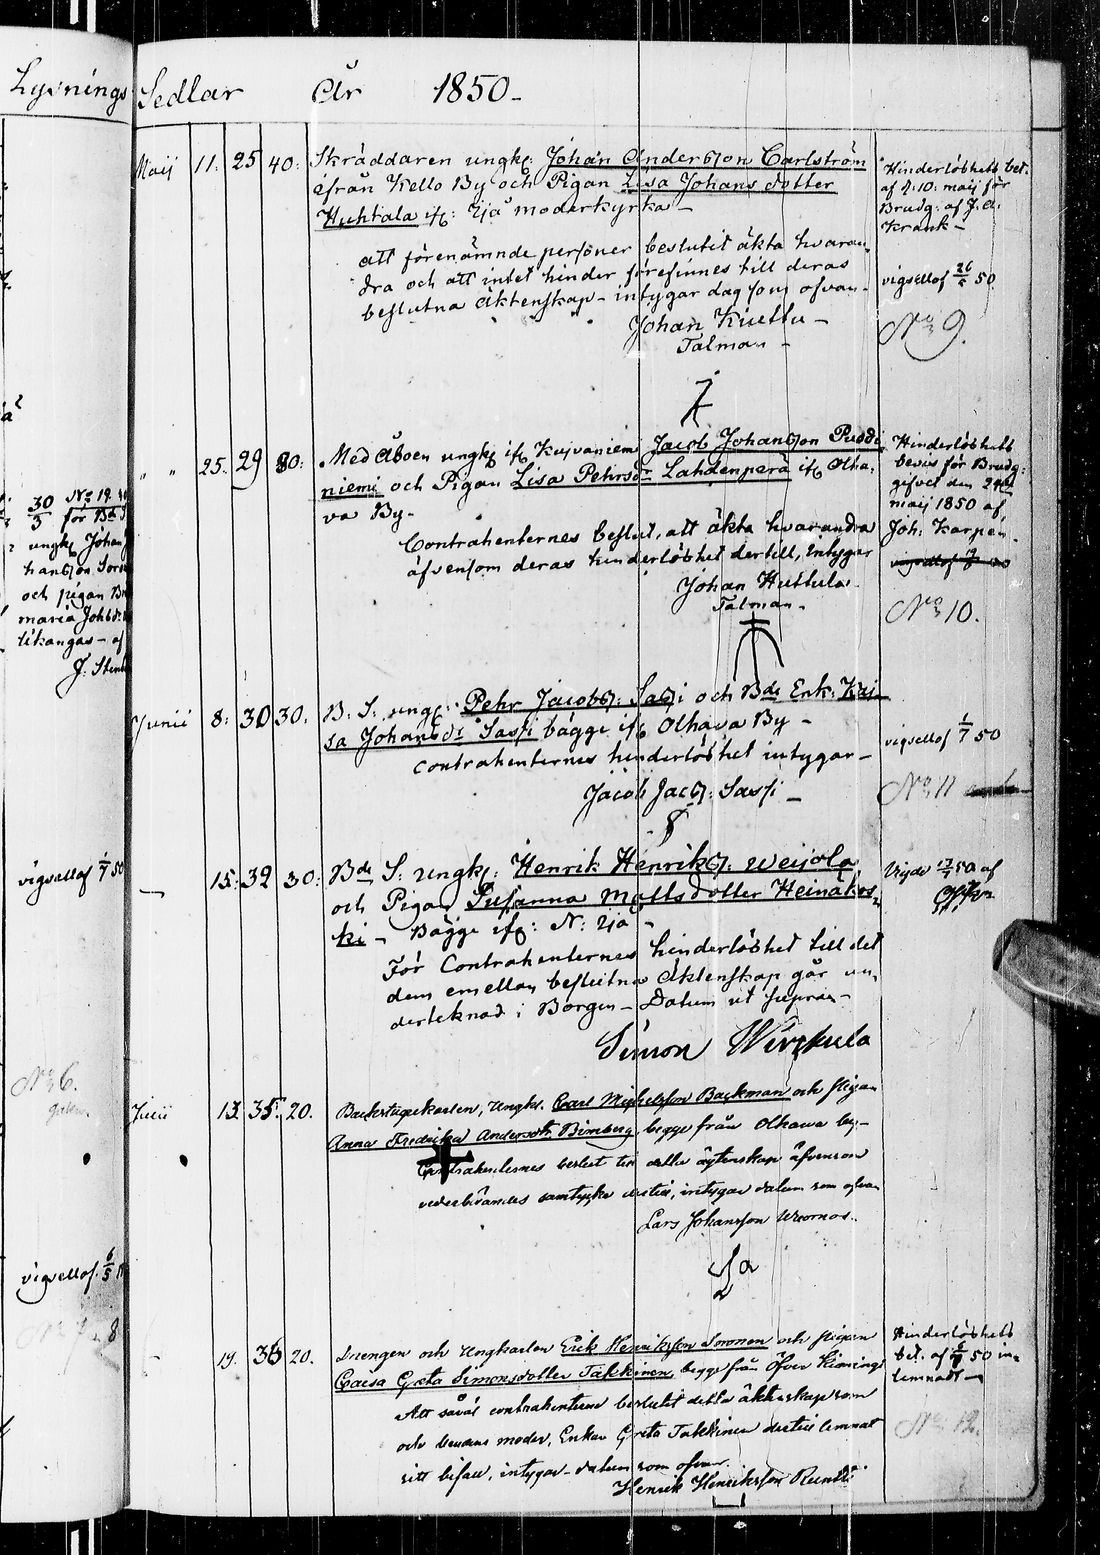 Lysnings Sedlar År 1850-
Maij 11: 25 40: Skräddaren ungk: Johan Andersson Carlström
ifrån Kello By och Pigan Lisa Johans dotter
Huhtala ifr: Ijå moderkyrka -
att förenämnde personer beslutit äkta hvaran-
dra och att intet hinder förefinnes till deras
beslutna äktenskap - intygar dag som ofvan -
Johan Kuettu -
Talman -
Hinderlöshets bet.
af d: 10: maij för
Brudg: af J. A.
Krank -
vigsellof 26/5 50
No 9.
" " 25. 29 30: Med Åboen ungk ifr Kuivaniemi Jacob Johansson Puddi
niemi och Pigan Lisa Pehrsdr Lahdenperä ifr Olha-
va By -
Contrahenternes beslut, att äkta hvarandra
äfvensom deras hinderlöshet dertill, intygar
Johan Huttula
Talman -
Hinderlöshets
bevis för Brudg:
gifvet den 24de
maij 1850 af
Joh: Karpén.
vigsellof
No 10.
Junii 8: 30 30. B: S: ungk: Pehr Jacobss: Sassi och Bde Enk: Kai-
sa Johansdr Sassi bägge ifr Olhava By -
Contrahenternes hinderlöshet intygar -
Jacob Jacss: Sassi -
vigsellof 1/7 50
No 11
- 15: 32 30: Bde S: ungk: Henrik Henrikss: Weijola
och Pigan Susanna Mattsdotter Heinäkos-
ki - Bägge ifr: N: Ijå -
För Contrahenternes hinderlöshet till det
dem emellan beslutna Äktenskap går un-
derteknad i Borgen - Datum ut supra -
Simon Wirkula
Vigde 17/7 50 af
Julii 13. 35. 20. Backstugukarlen, Ungk. Carl Michelsson Backman och Pigan
Anna Fredrika Andersdr Bimberg, begge från Olhawa by -
Contrahenternes beslut till detta ägtenskap äfvensom
vederbörandes samtycke dertill, intygar datum som ofvan
Lars Johansson Wuornos.
- 19. 36 20. Drengen och Ungkarlen Erik Henriksson Soronen och Pigan
Caisa Greta Simonsdotter Takkinen, begge från Öfver Kiimingi
Att såväl contrahenterne beslutit detta äktenskap som
och hennes moder, Enkan Greta Takkinen dertill lemnat
sitt bifall, intygar - datum som ofvan.
Henrik Henriksson Runtti
Hinderlöshets
bet. af 5/7 50 in-
lemnadt -
No 12.
30/3 No 19
för
ungk Johan
och pigan
maria Johsdr
likangas - af
J. Sten
vigsellof 1/7 50
No 6.
vigsellof 6/5
No 7 8